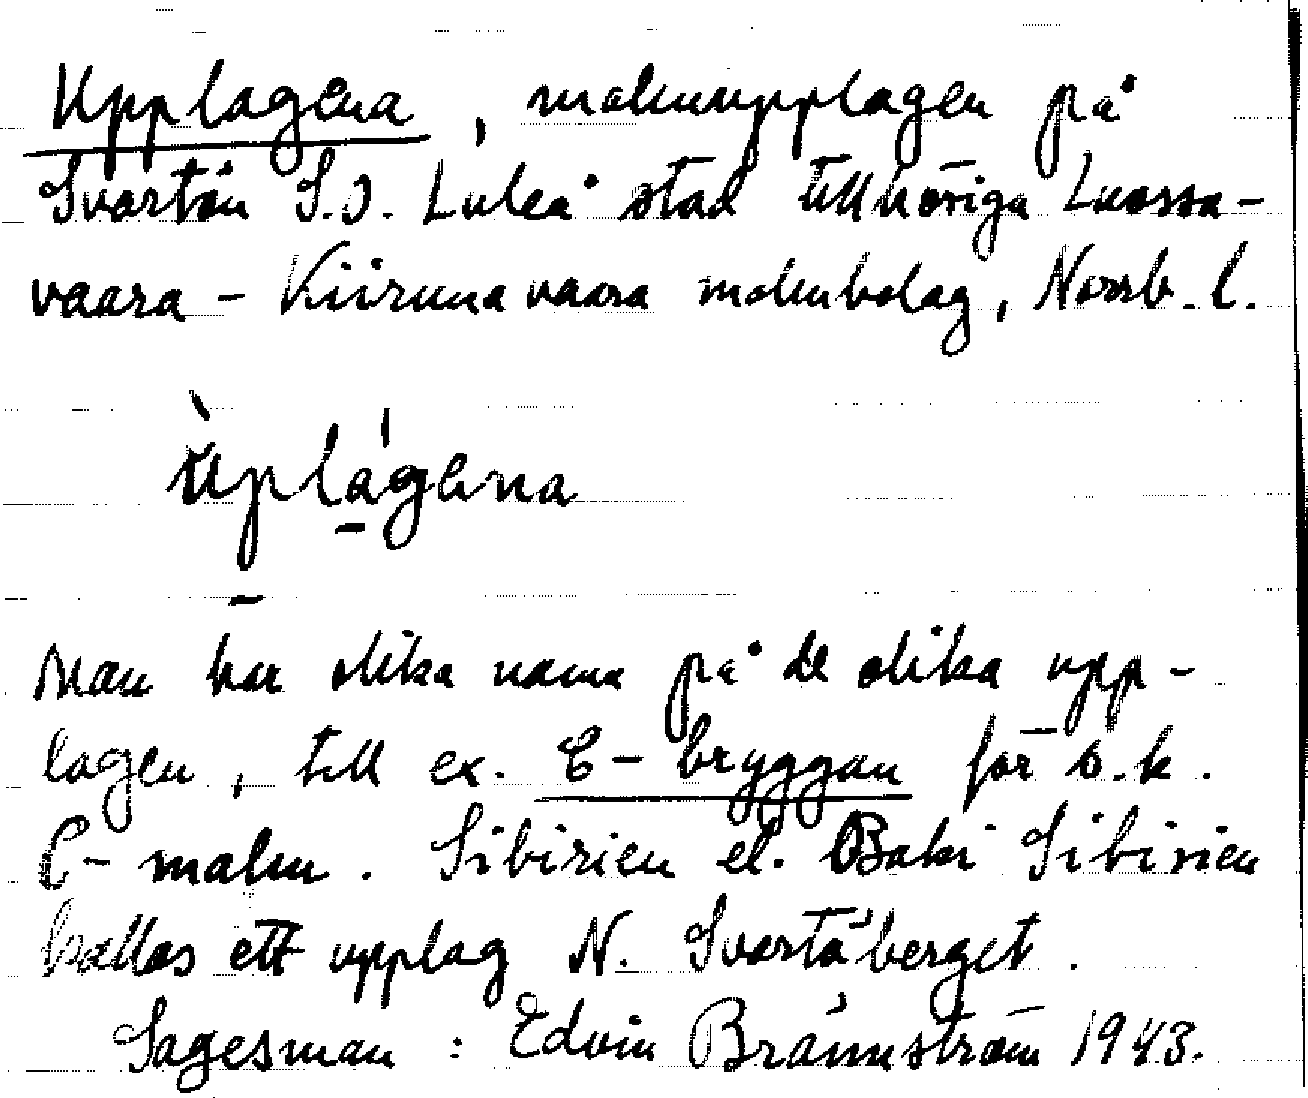 Upplagena, malmupplagen på
Svartön S.O. Luleå stad tillhöriga Luossa-
vaara - Kiirunavaara malmbolag, Norrb. l.
ùplágena
Man har olika namn på de olika upp-
lagen, till ex. C-bryggan för s.k.
C-malm. Sibirien el. Baki Sibirien
kallas ett upplag N. Svartöberget.
Sagesman : Edvin Brännström 1943.